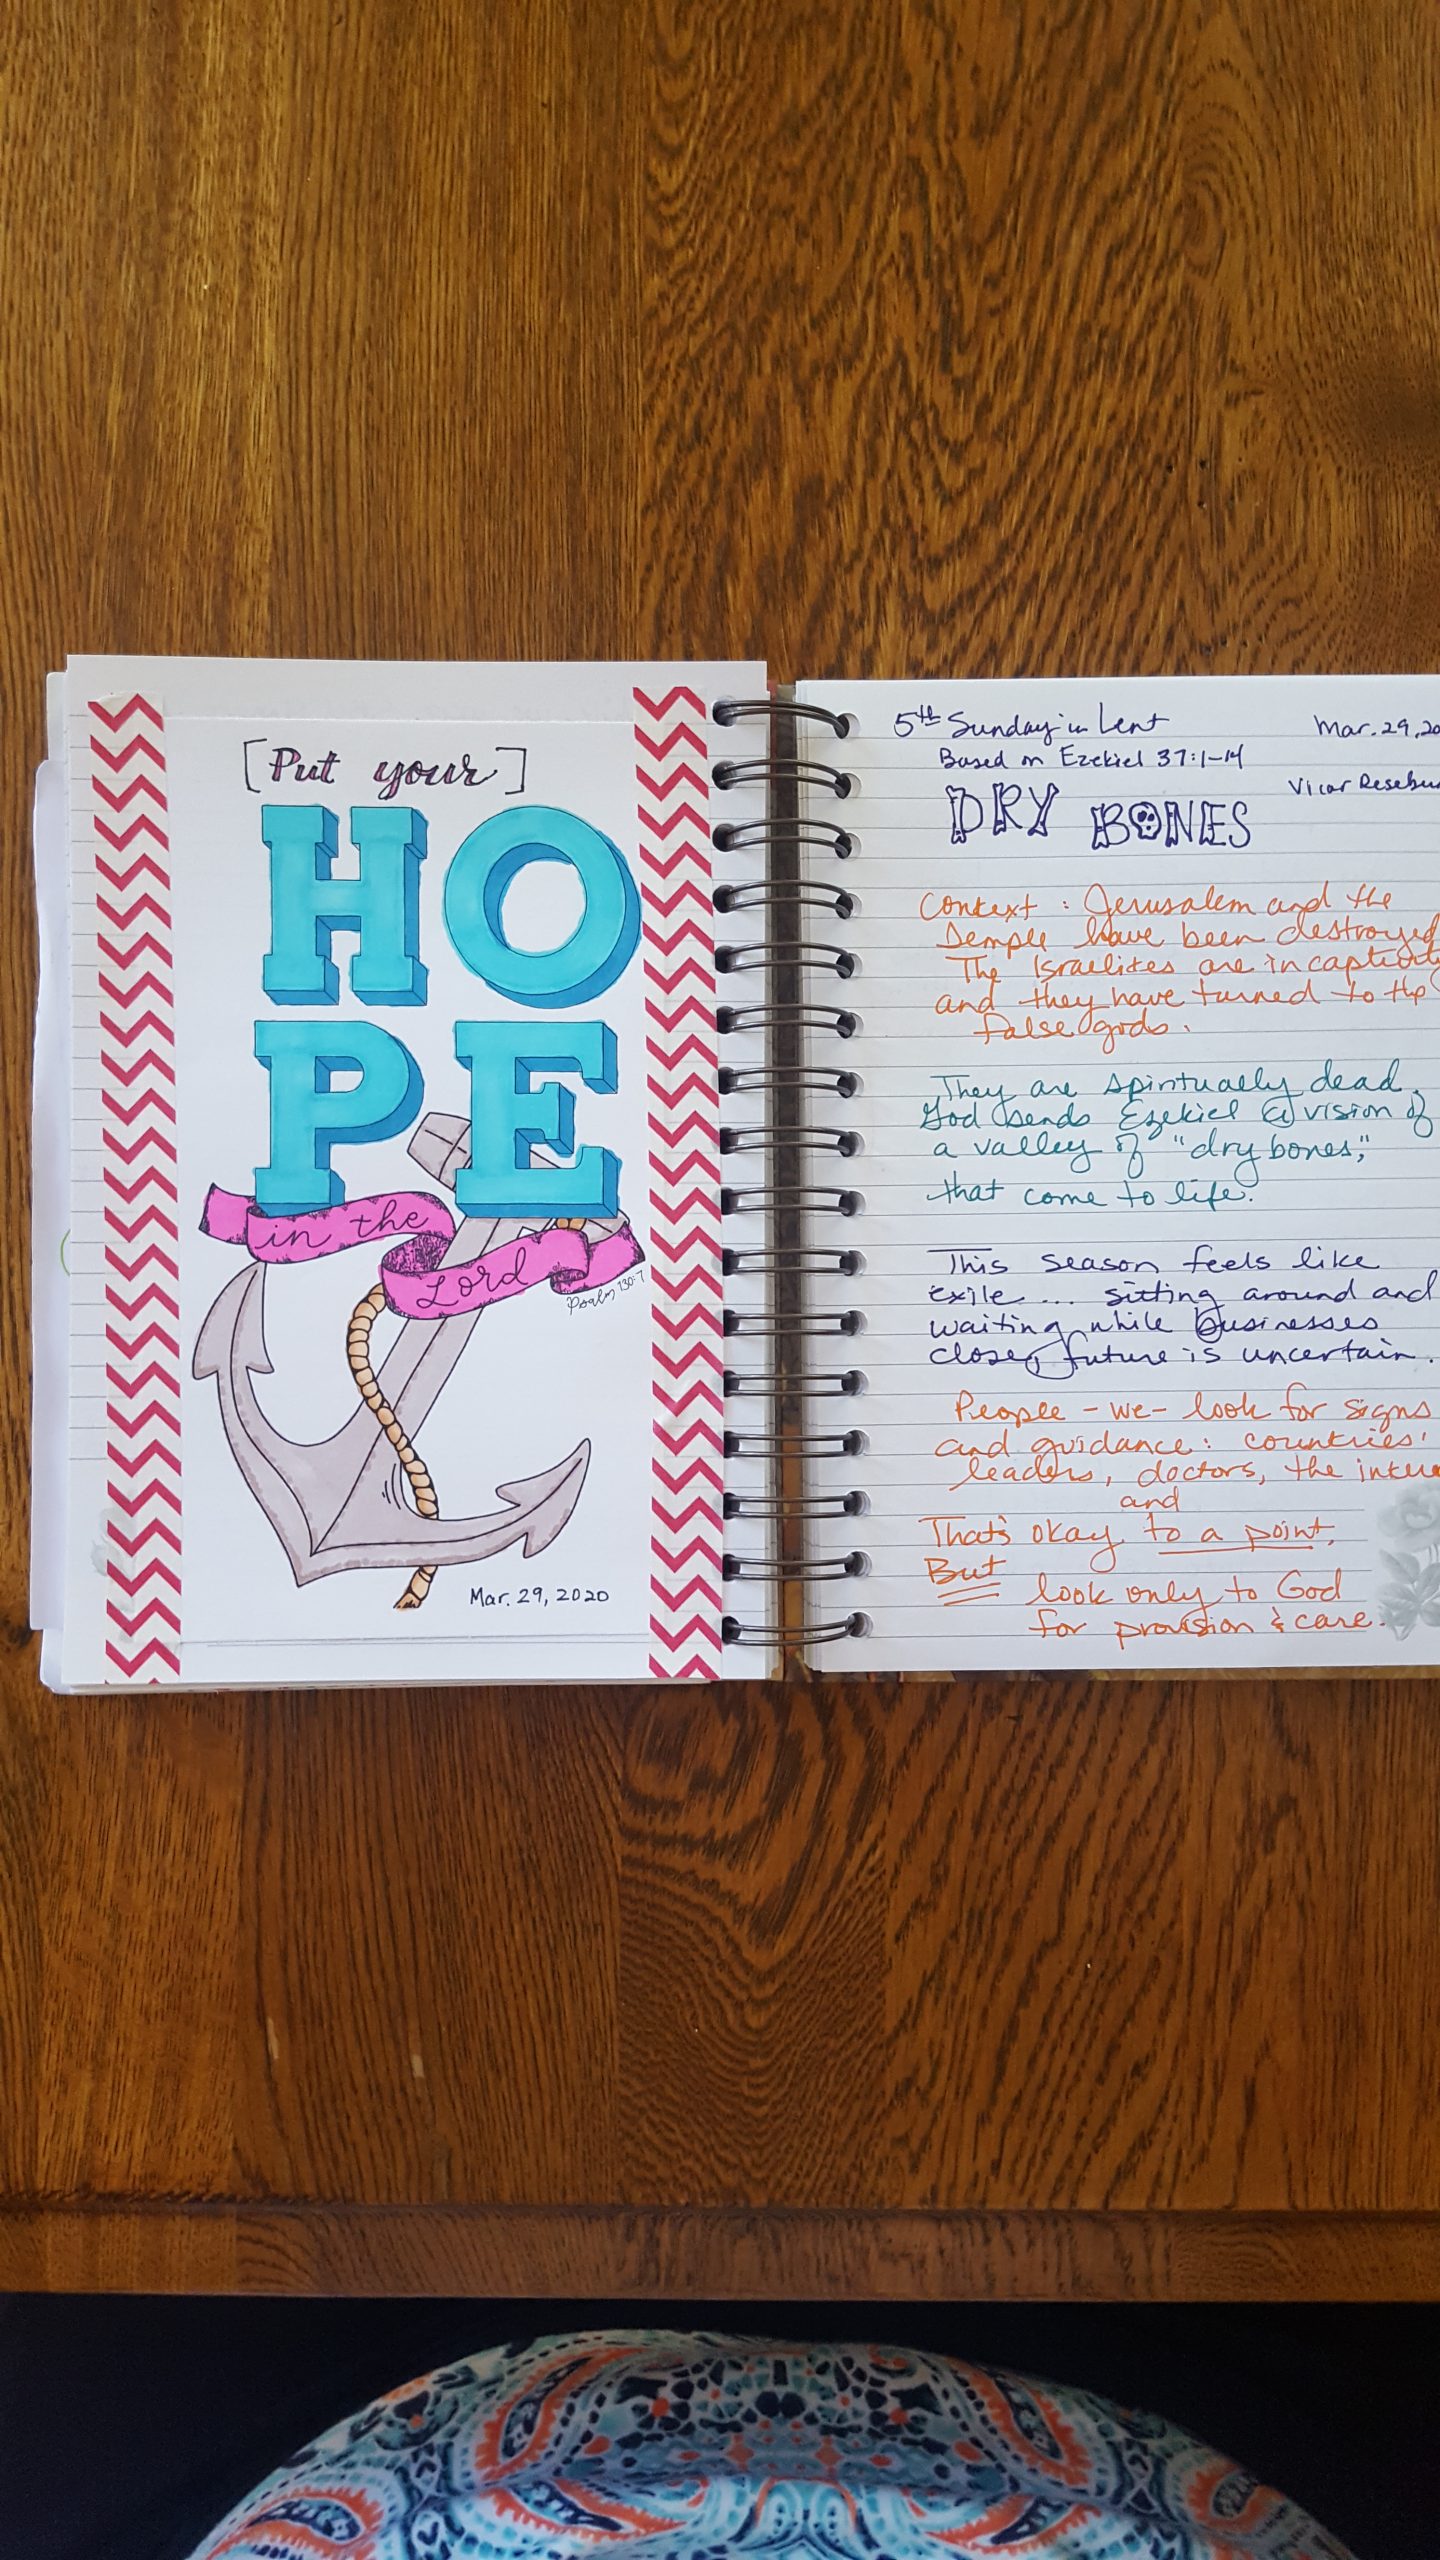 [Put your]
HO
PE
in the
Lord
Psalm 130:7
Mar. 29, 2020
5th Sunday in Lent
Mar. 29, 20
Based on Ezekiel 37:1-14
Vicar
DRY BONES
Context : Jerusalem and the
Temple have been destroyed
The Israelites are in captivity
and they have turned to the
false gods.
They are spiritually dead.
God sends Ezekiel a vision of
a valley of "dry bones,"
that come to life.
This season feels like
exile... sitting around and
waiting while businesses
close, future is uncertain.
People - we - look for signs
and guidance: countries'
leaders, doctors, the inter
and
That's okay to a point.
But
look only to God
for provision & care.